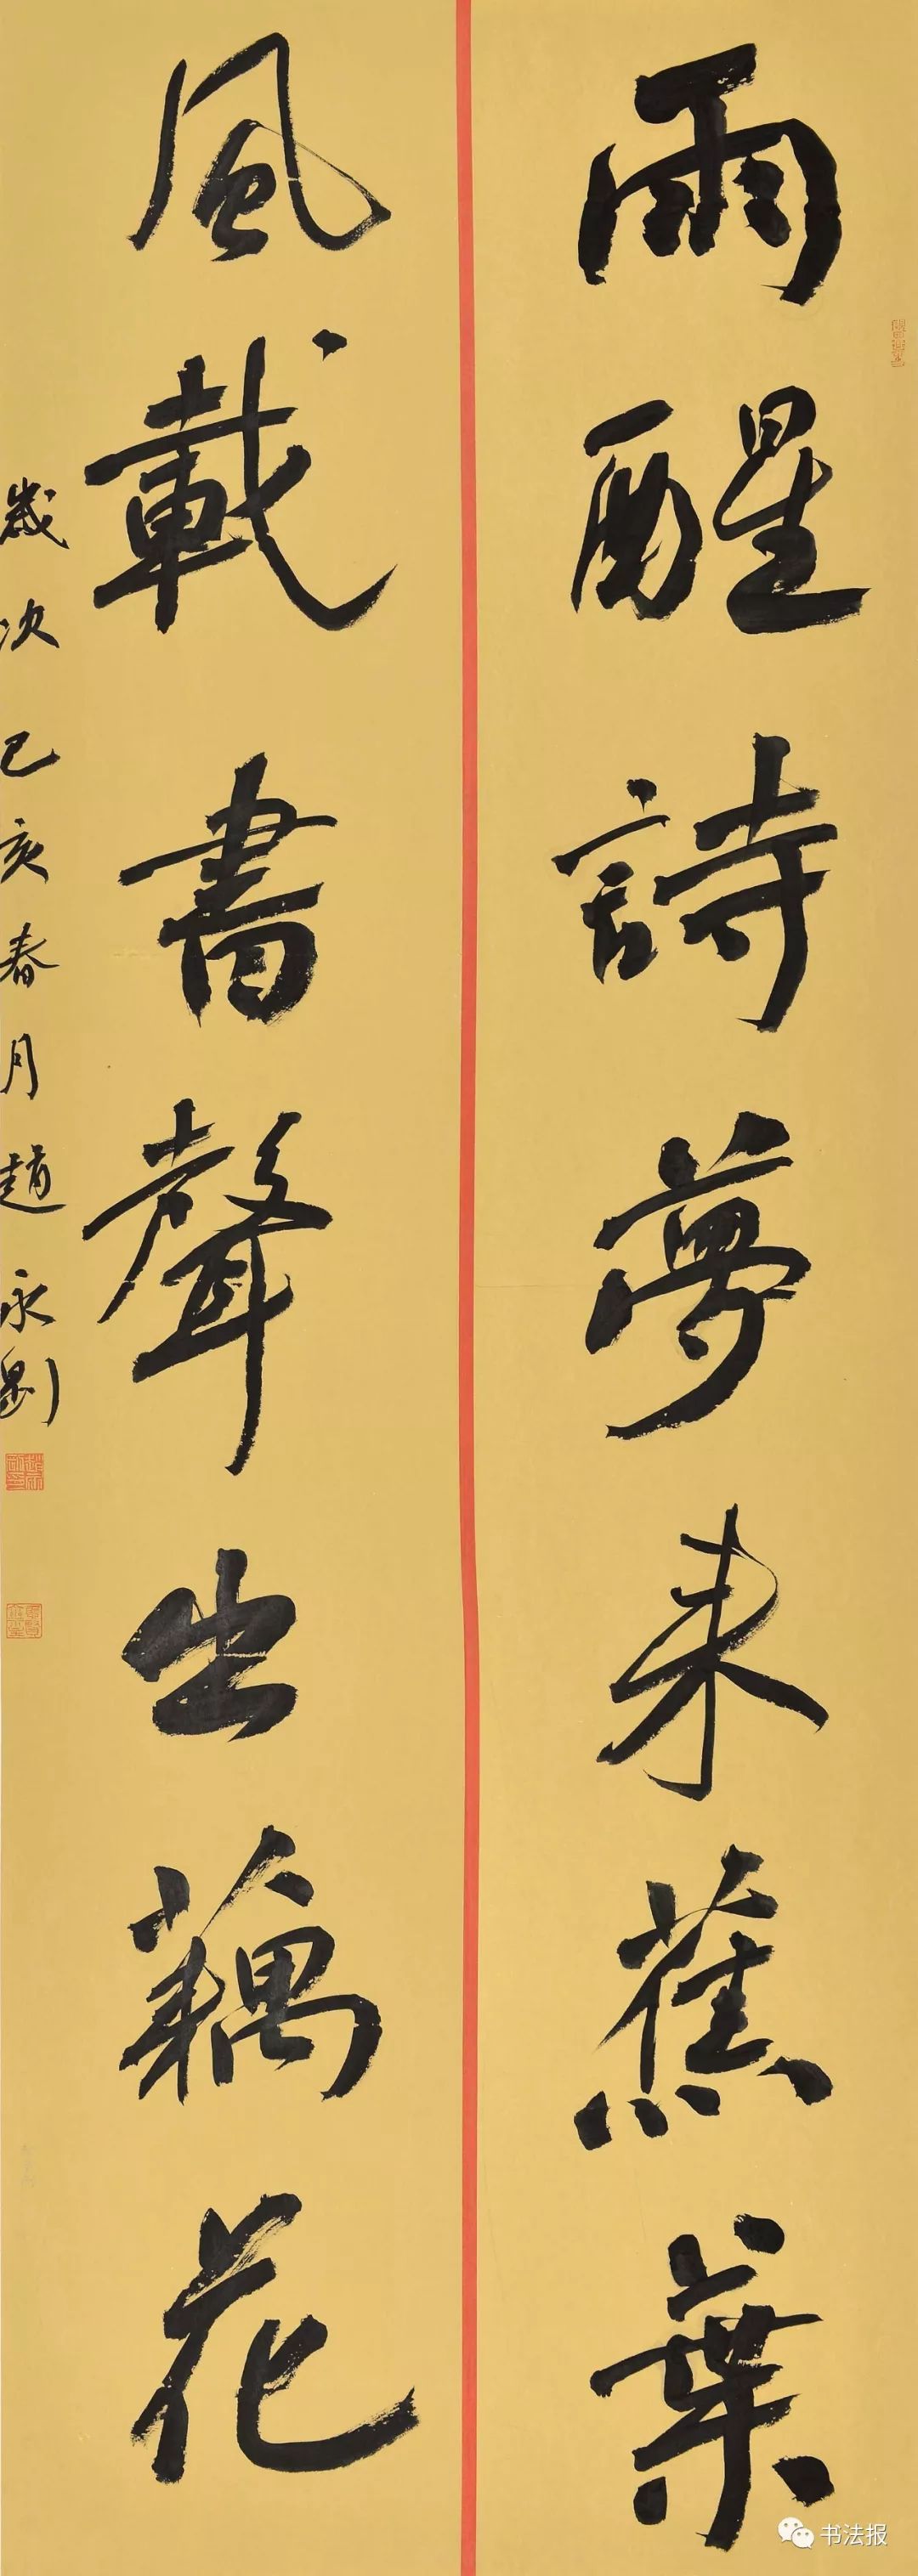 雨醒詩夢來蕉葉
風載書聲出藕花
歲次己亥春月趙永剛
书法报